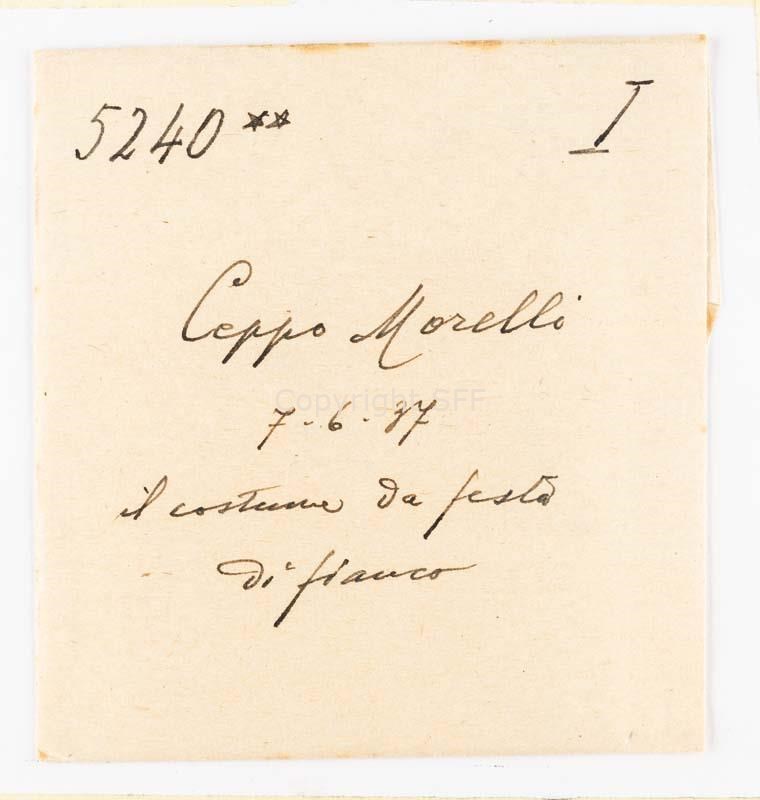 5240** I
Ceppo Morelli
Copyright SFF
7-6-37
il costume da festa
di fianco